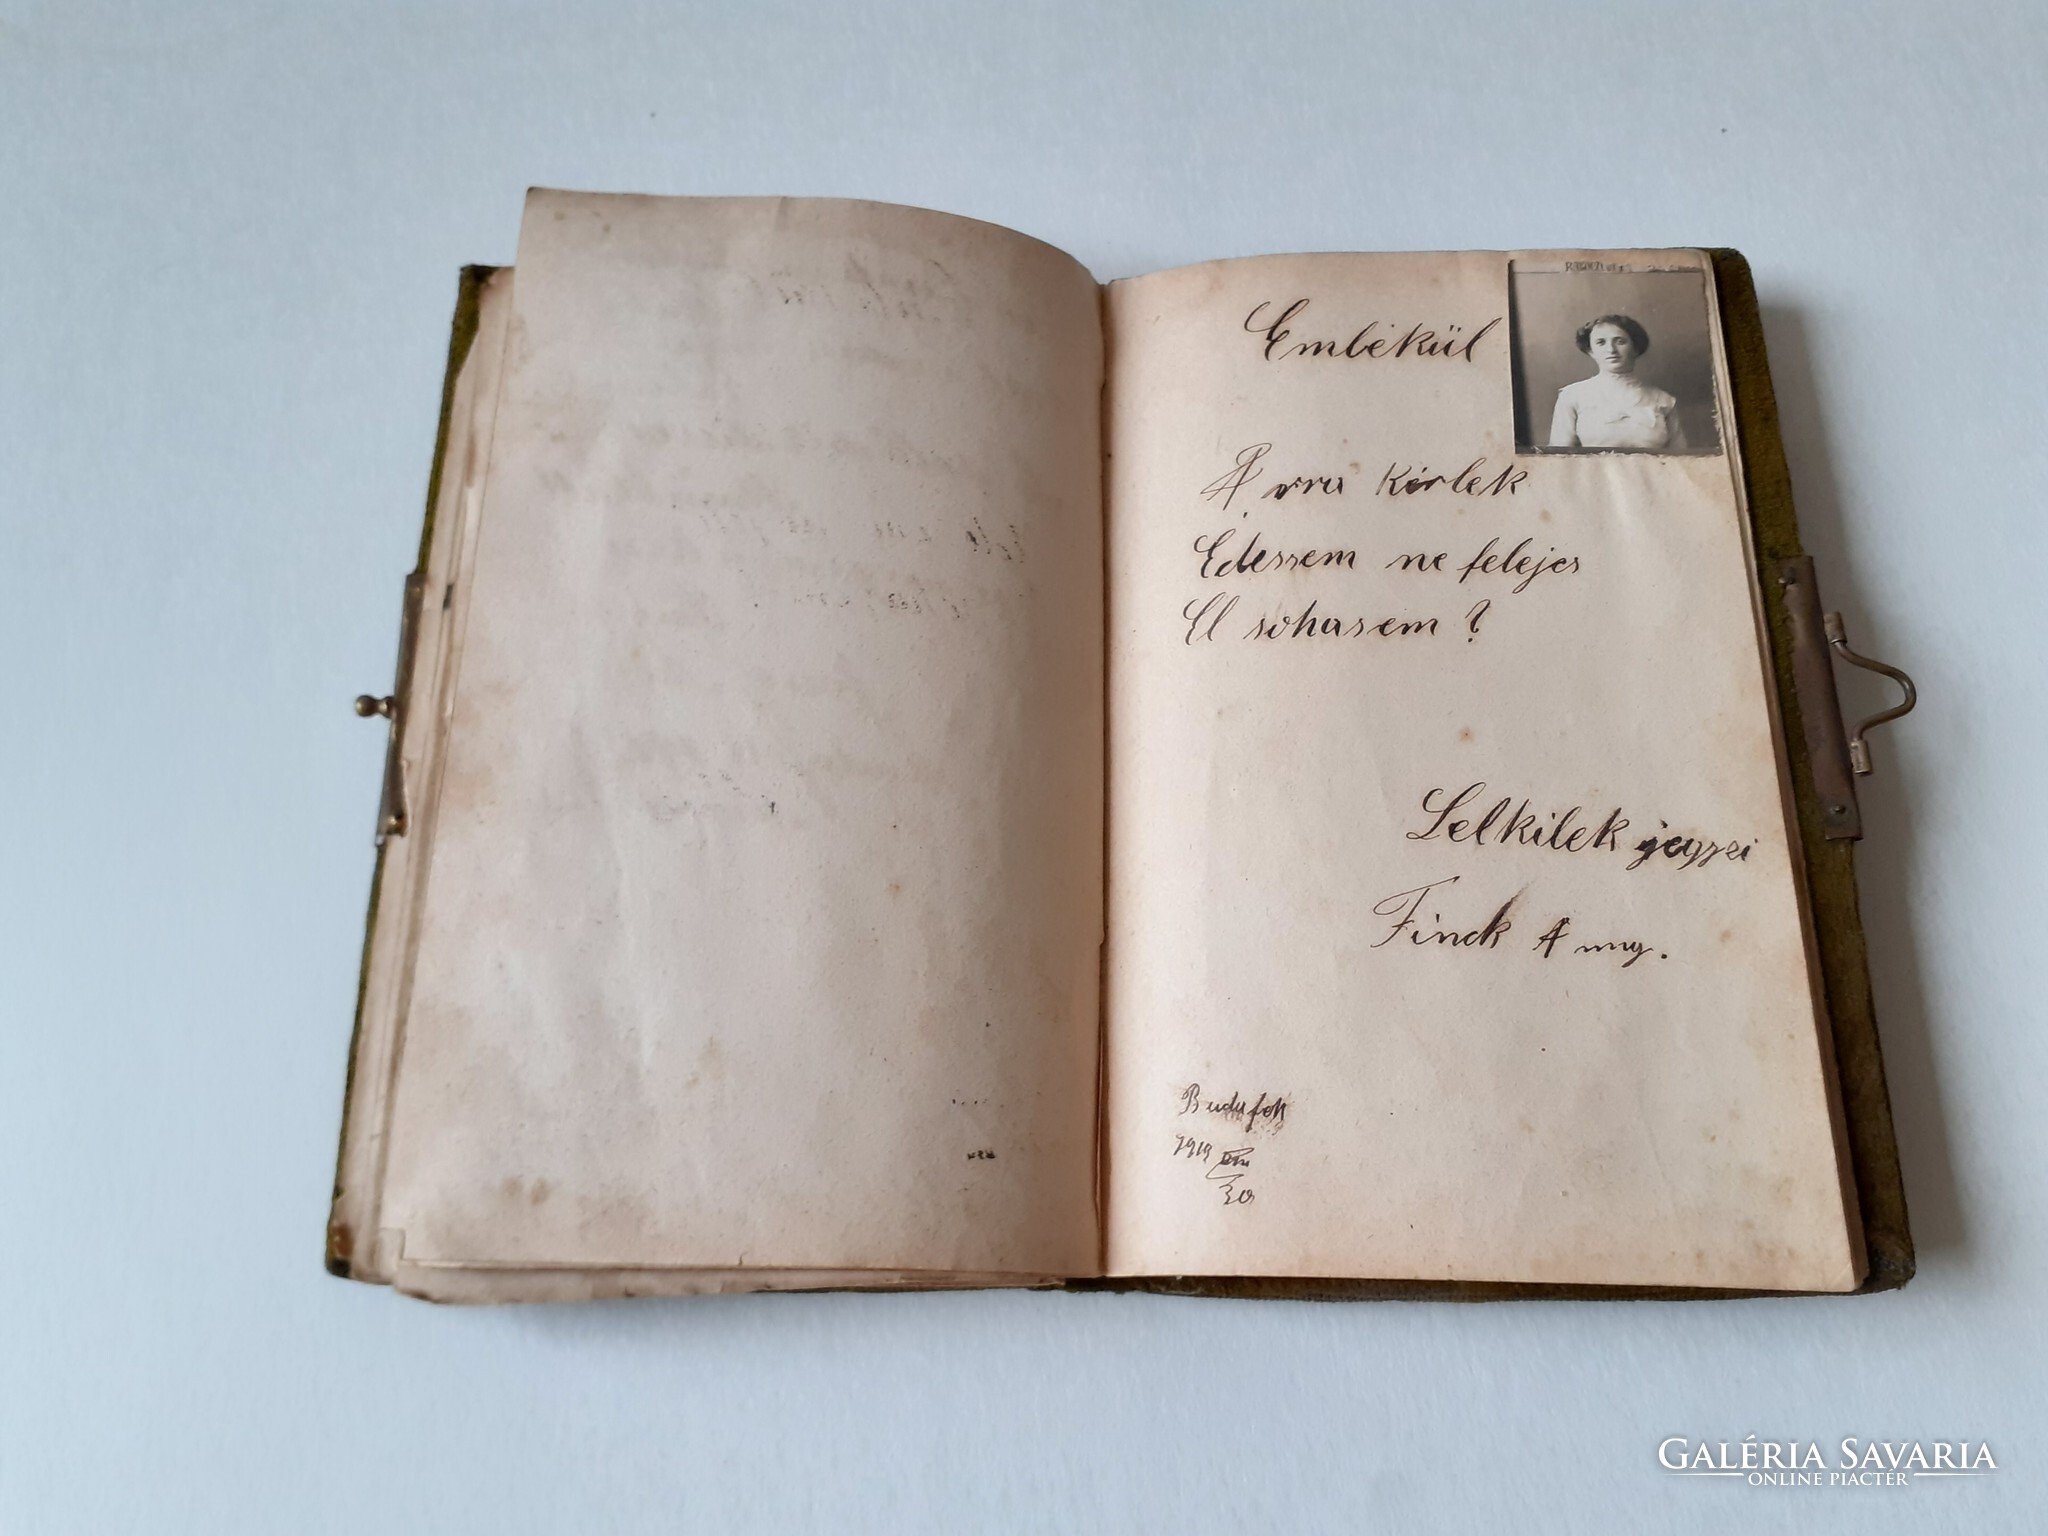 Embékül
Arra kérlek
Edessem ne felejcs
El sohasem ?
Lelkilek jegyzei
Finck Anny.
Budafok
1913
30
GALÉRIA SAVARIA
ONLINE PIACTÉR